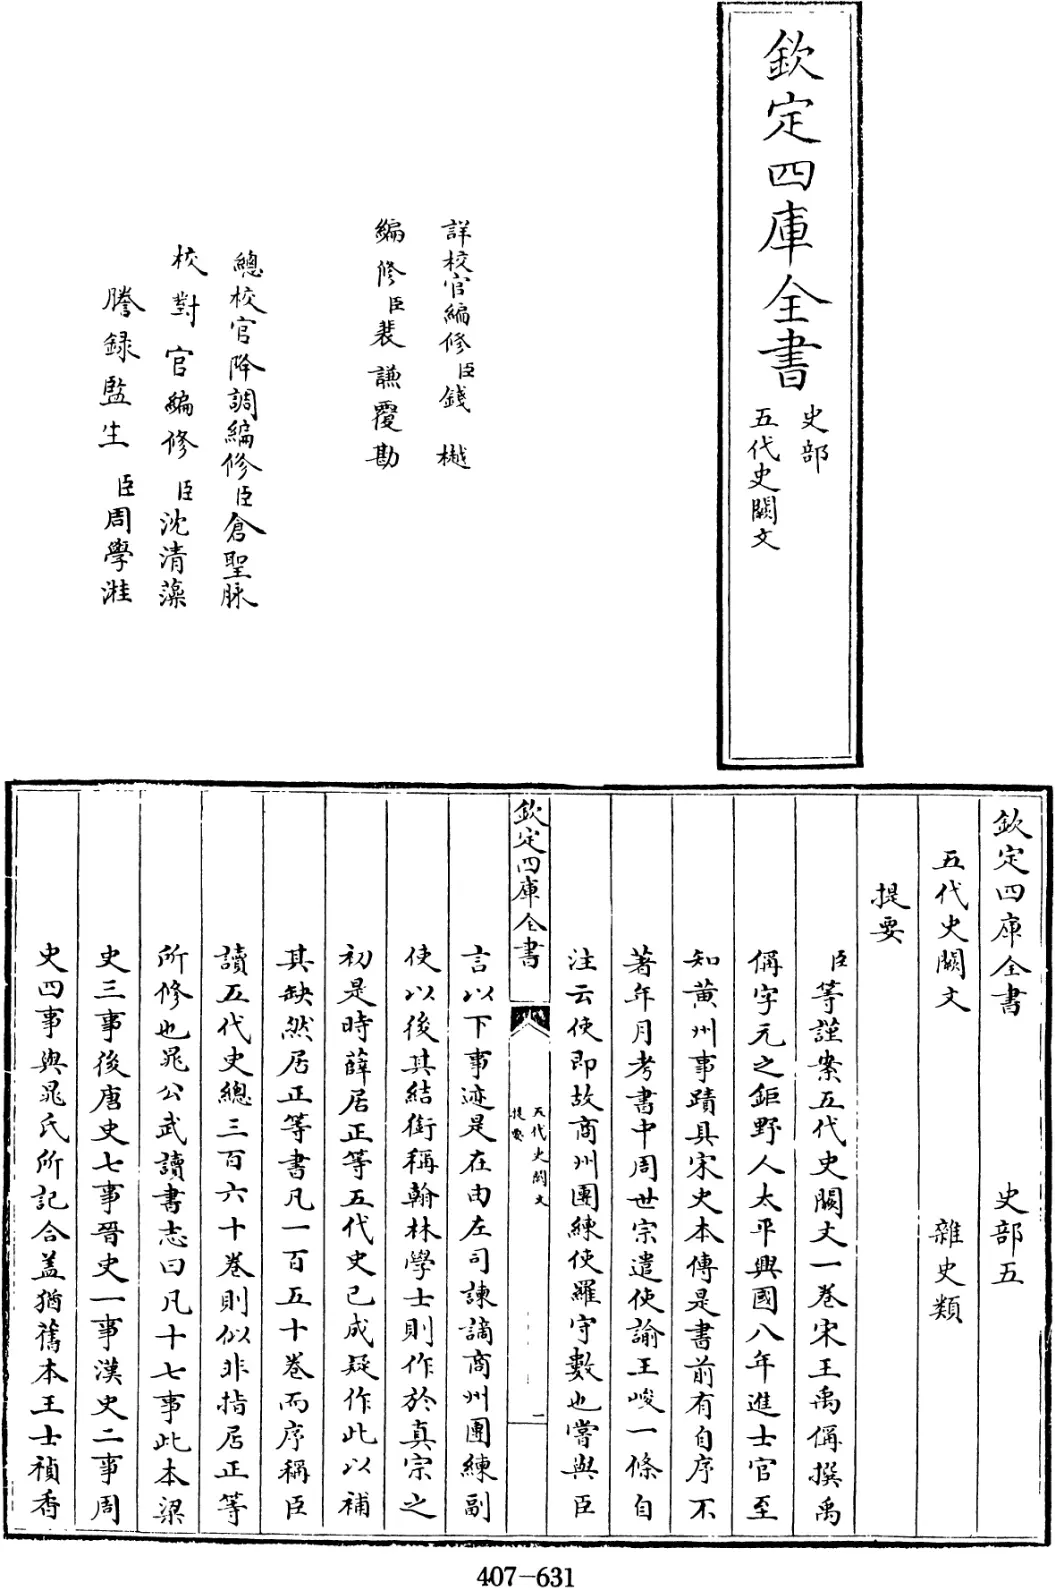 欽定四庫全書
史部
五代史闕文
詳校官編修臣錢樾
編修臣裴謙覆勘
總校官降調編修臣倉聖脉
校對官編修臣沈清藻
謄録監生臣周學濰
欽定四庫全書 史部五
五代史闕文 雜史類
提要
臣等謹案五代史闕文一卷宋王禹偁撰禹
偁字元之鉅野人太平興國八年進士官至
知黄州事蹟具宋史本傳是書前有自序不
著年月考書中周世宗遣使諭王峻一條自
注云使即故商州團練使羅守數也嘗與臣
欽定四庫全書
五代史闕文
提要
二
言以下事迹是在由左司諫謫商州團練副
使以後其結銜稱翰林學士則作於真宗之
初是時薛居正等五代史已成疑作此以補
其缺然居正等書凡一百五十卷而序稱臣
讀五代史總三百六十卷則似非指居正等
所修也晁公武讀書志曰凡十七事此本梁
史三事後唐史七事晉史一事漢史二事周
史四事與晁氏所記合盖猶舊本王士禎香
407-631